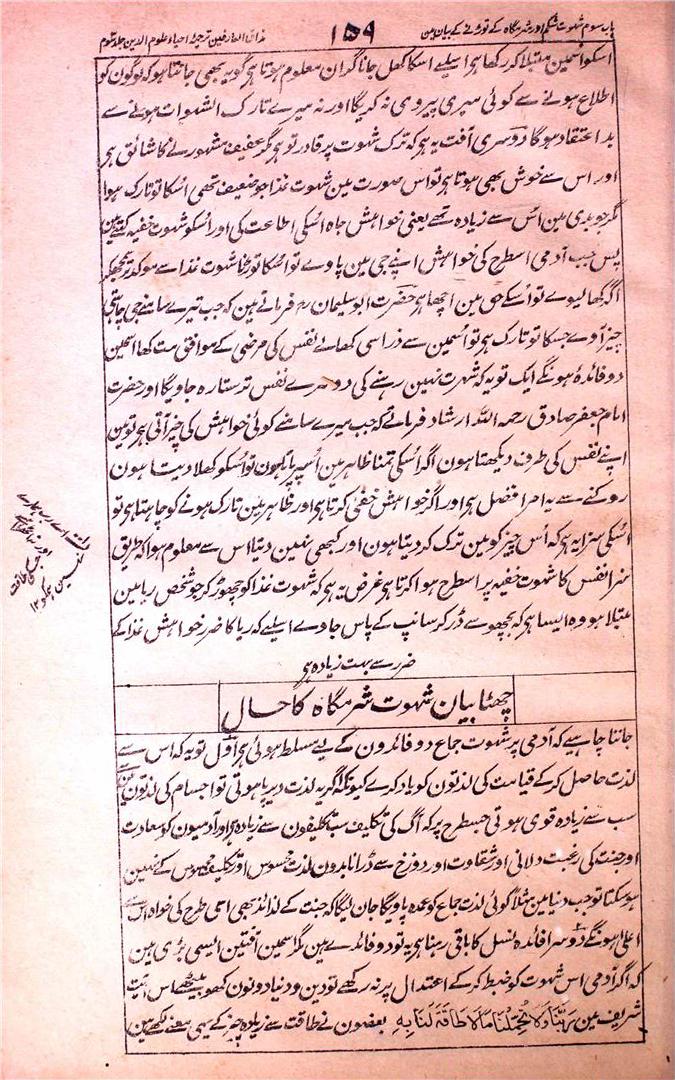 باب سوم شہوت شکم اور شرمگاہ کے توڑنے کے بیان مین
١٥٩
مذاق العارفین ترجمۂ احیاء علوم الدین جلد سوم
اسکو اسمین مبتلا کر رکھا ہی اسلیے اسکا کھل جانا گران معلوم ہوتا ہی گو یہ بھی جانتا ہو کہ لوگون کو
اطلاع ہونے سے کوئی میری پیروی نہ کریگا اور نہ میرے تارک الشہوات ہونے سے
بد اعتقاد ہوگا دوسری آفت یہ ہی کہ ترک شہوت پر قادر تو ہی مگر عفیف مشہور ہونے کا شائق ہی
اور اس سے خوش بھی ہوتا ہی تو اس صورت مین شہوت غذا جو ضعیف تھی اسکا تو تارک ہوا
مگر جو بدی مین اس سے زیادہ تھے یعنی خواہش جاہ اسکی اطاعت کی اور اسکو شہوت خفیہ کہتے ہین
پس جب آدمی اسطرح کی خواہش اپنے جی مین پاوے تو اسکا توڑنا شہوت غذا سے موکد تر سمجھکر
اگر کھا لیوے تو اسکے حق مین اچھا ہی حضرت ابو سلیمان رح فرماتے ہین کہ جب تیرے سامنے جی چاہتی
چیز آوے جسکا تو تارک ہی تو اسمین سے ذرا سی کھا لے نفس کی مرضی کے موافق مت کھا اسمین
دو فائدہ ہونگے ایک تو یہ کہ شہرت نہین رہنے کی دوسرے نفس ترستا رہ جاویگا اور حضرت
امام جعفر صادق رحمہ اللہ ارشاد فرماتے کہ جب میرے سامنے کوئی خواہش کی چیز آتی ہی تو مین
اپنے نفس کی طرف دیکھتا ہون اگر اسکی تمنا ظاہر مین اسپر پاتا ہون تو اسکو کھلا دیتا ہون
روکنے سے یہ امر افضل ہی اور اگر خواہش خفی کرتا ہی اور ظاہر مین تارک ہونے کو چاہتا ہی تو
اسکی سزا یہ ہی کہ اس چیز کو مین ترک کر دیتا ہون اور کبھی نہین دیتا اس سے معلوم ہوا کہ طریق
سزا نفس کا شہوت خفیہ پر اسطرح ہوا کرتا ہی غرض یہ ہی کہ شہوت غذا کو چھوڑ کر جو شخص ریا مین
مبتلا ہو وہ ایسا ہی کہ بچھو سے ڈر کر سانپ کے پاس جاوے اسلیے کہ ریا کا ضرر خواہش غذا کے
ضرر سے بہت زیادہ ہی
چھٹا بیان شہوت شرمگاہ کا حال
جاننا چاہیے کہ آدمی پر شہوت جماع دو فائدون کے لیے مسلط ہوئی ہی اول تو یہ کہ اس سے
لذت حاصل کرکے قیامت کی لذتون کو یاد کرے کیونکہ اگر یہ لذت دیرپا ہوتی تو اجسام کی لذتون مین
سب سے زیادہ قوی ہوتی جسطرح پر کہ آگ کی تکلیف سب تکلیفون سے زیادہ ہی اور آدمیون کو سعادت
اور جنت کی رغبت دلانی اور شقاوت اور دوزخ سے ڈرانا بدون لذت محسوس اور تکلیف محسوس کے نہین
ہو سکتا تو جب دنیا مین مثلا کوئی لذت جماع کو عمدہ پاویگا جان لیگا کہ جنت کے لذائذ بھی اسی طرح کی خواہ اس سے
اعلیٰ ہونگے دوسرا فائدہ نسل کا باقی رہنا ہی یہ تو دو فائدے ہین مگر اسمین آفتین ایسی بڑی ہین
کہ اگر آدمی اس شہوت کو ضبط کرکے اعتدال پر نہ رکھے تو دین و دنیا دونون کھو بیٹھے اس آیت
شریف مین رَبَّنَا وَلَا تُحَمِّلْنَا مَا لَا طَاقَةَ لَنَا بِهِ بعضون نے طاقت سے زیادہ چیز کے یہی معنے لکھے ہین